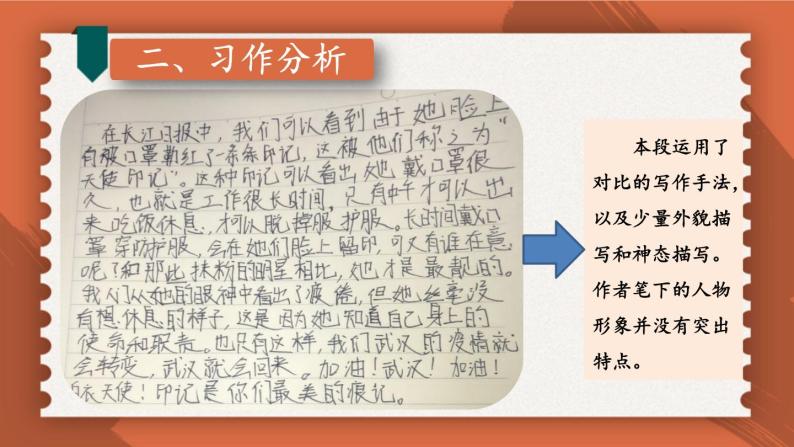 二、习作分析
在长江日报中，我们可以看到由于她脸上
有被口罩勒红了一条条印记，这被他们称之为“
天使印记”。这种印记可以看出她戴口罩很
久，也就是工作很长时间，只有中午才可以出
来吃饭休息，才可以脱掉服护服。长时间戴口
罩穿防护服，会在她们脸上留印，可又有谁在意
呢？和那比抹粉的明星相比，她才是最靓的。
我们从她的眼神中看出了疲倦，但她丝毫没
有想休息的样子，这是因为她知道自己身上的
使命和职责。也只有这样，我们武汉的疫情就
会转变，武汉就会回来。加油！武汉！加油！
白衣天使！印记是你们最美的痕记。
本段运用了
对比的写作手法，
以及少量外貌描
写和神态描写。
作者笔下的人物
形象并没有突出
特点。